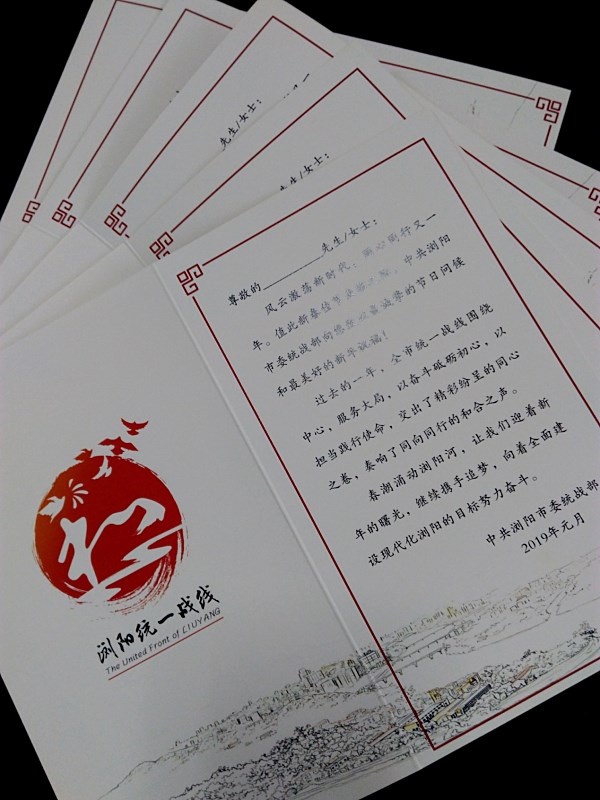 先生/女士：
先生/女士：
尊敬的________先生/女士：
风云激荡新时代，同心同行又一
年。值此新春佳节来临之际，中共浏阳
市委统战部向您致以最诚挚的节日问候
和最美好的新年祝福！
过去的一年，全市统一战线围绕
中心，服务大局，以奋斗砥砺初心，以
担当践行使命，交出了精彩纷呈的同心
之卷，奏响了同向同行的和合之声。
春潮涌动浏阳河，让我们迎着新
年的曙光，继续携手追梦，向着全面建
设现代化浏阳的目标努力奋斗。
中共浏阳市委统战部
2019年元月
浏阳统一战线
The United Front of LIUYANG